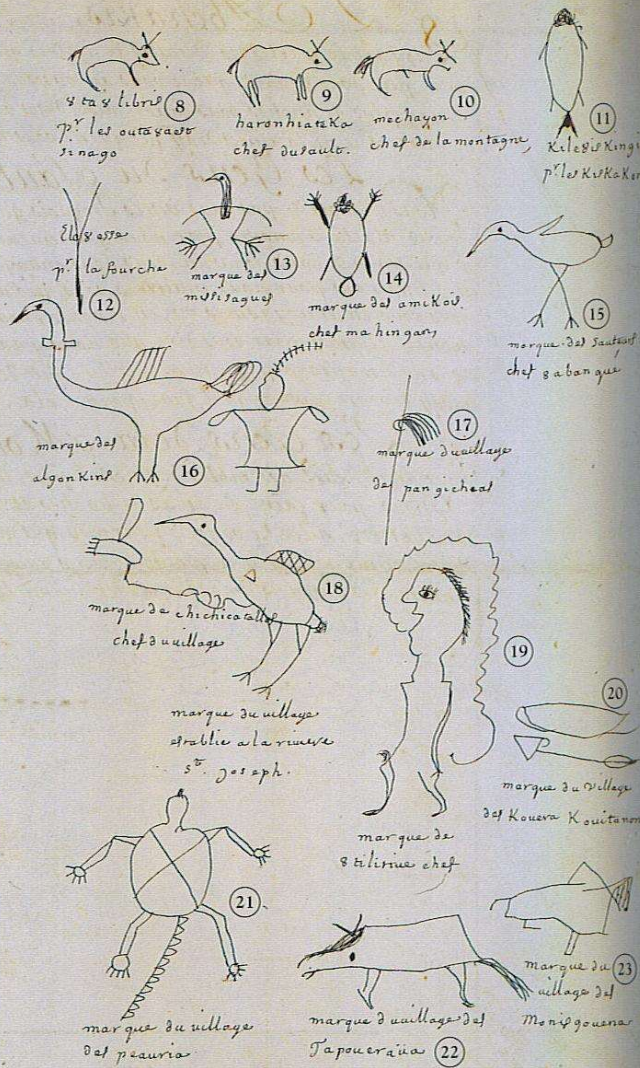 8
8ta8libris
pr les outa8aest
sinago
9
haronhiateka
chef dusault.
10
mechayon
chef de la montagne,
11
Kile8isKingi
pr les KisKaKon
12
Ela8esse
pr la fourche
13
marque des
missisagues
14
marque des amikois.
chef mahingan,
15
marque des Sauteurs
chef 8abangué
16
marque des
algonkins
17
marque du village
de pangicheas
18
marque de chichicatalle
chef du village
marque du village
establie a la riviere
st. Joseph.
19
marque de
8tilirine chef
20
marque du village
des Kouera Kouitanon
21
marque du village
des peauria
22
marque d village des
Tapoueraüa
23
marque du
village des
Monisgouena